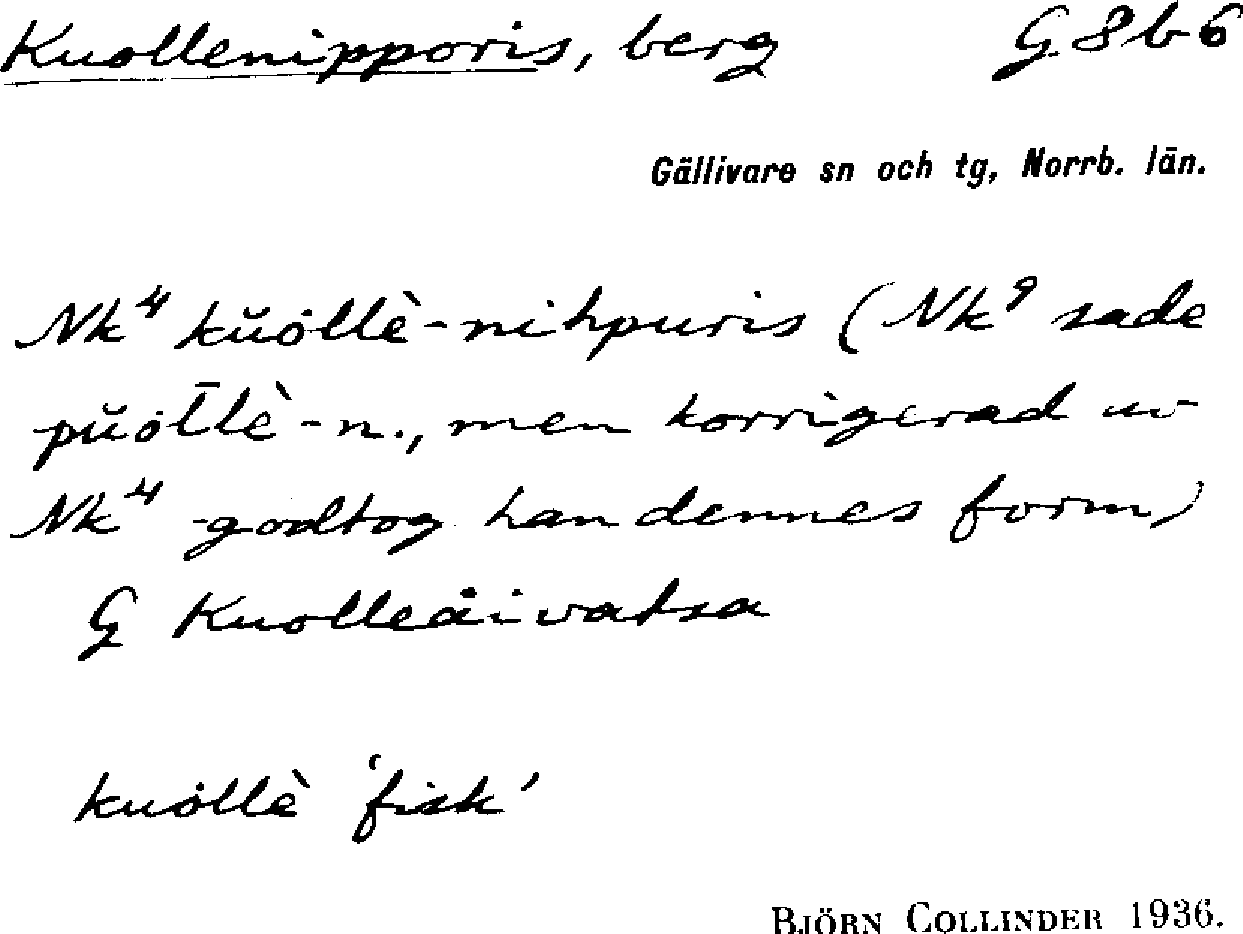 Kuollenipporis, berg G 8 b 6
Gällivare sn och tg, Norrb. län.
Nk⁴ kŭȯllè-nihpuris (Nk⁹ sade
pŭȯl̅lè-n., men korrigerad av
Nk⁴ godtog han dennes form)
G Kuolleåivatsa
kuȯllè 'fisk'
BJÖRN COLLINDER 1936.